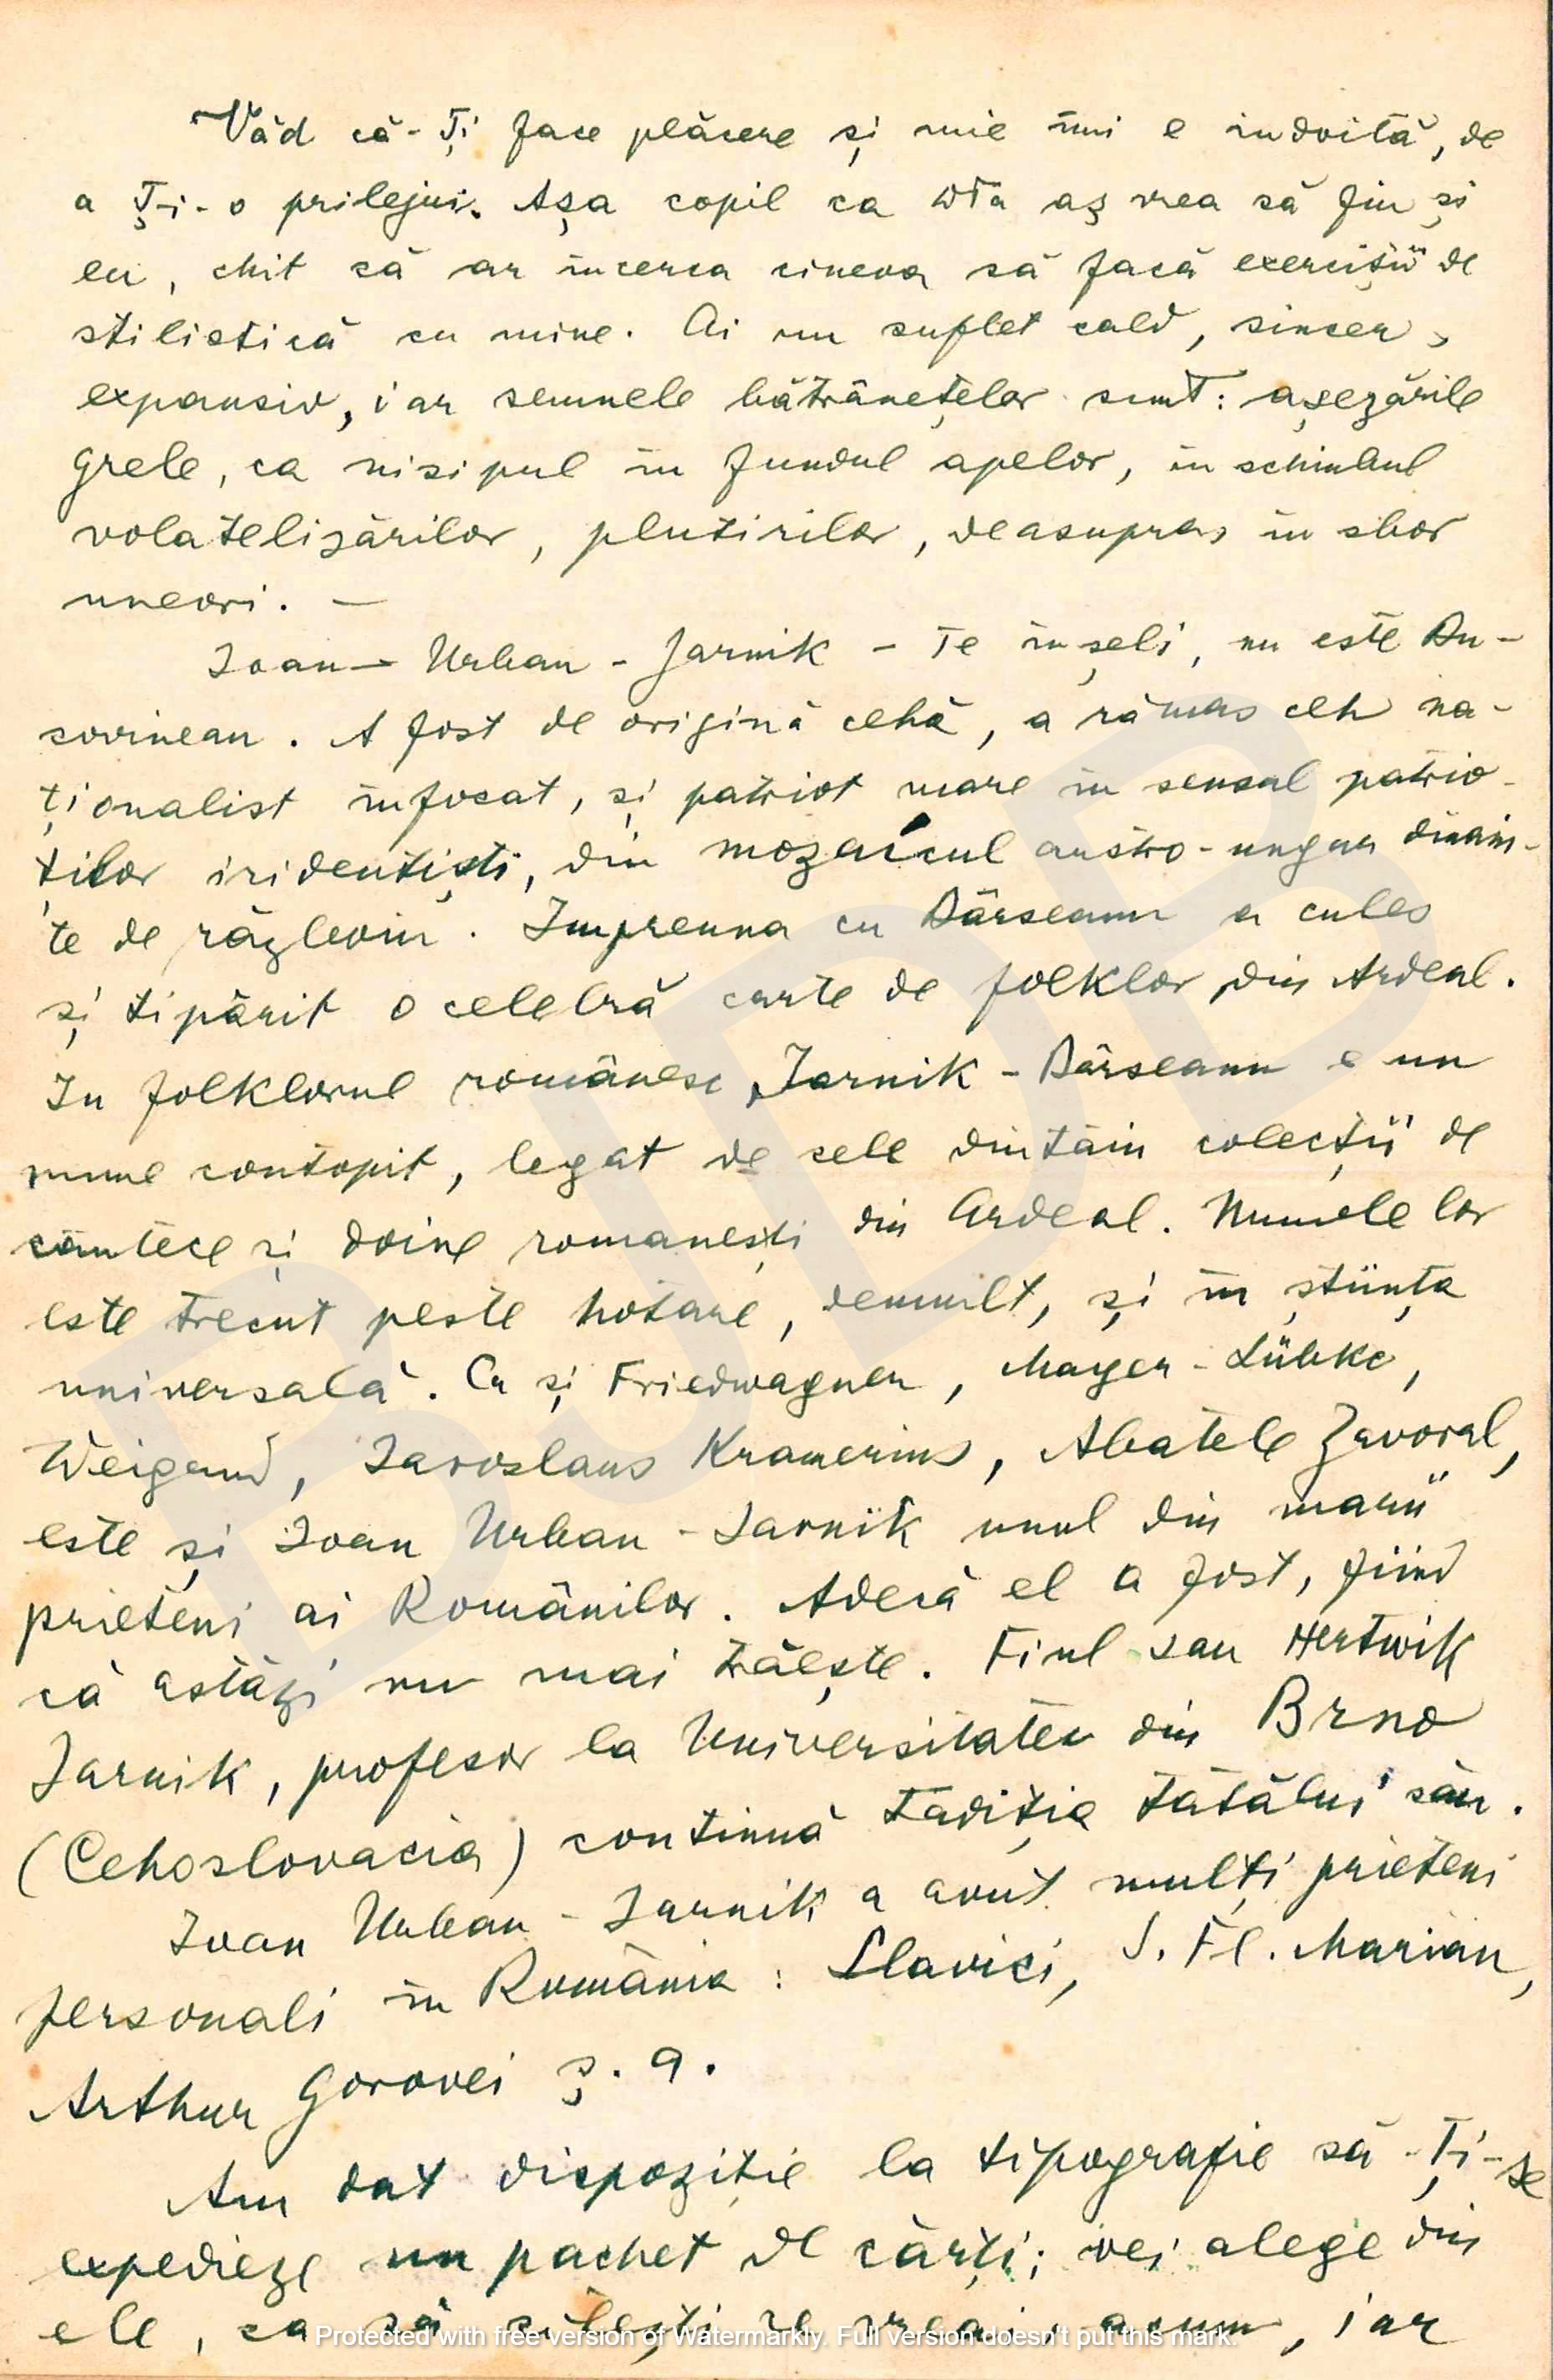 Văd că-Ți face plăcere și mie îmi e îndoită, de
a Ț-i-o prilejui. Așa copil ca dta aș vrea să fiu și
eu, chit că ar încerca cineva să facă exerciții de
stilistică cu mine. Ai un suflet cald, sincer,
expansiv, iar semnele bătrânețelor sunt: așezările
grele, ca nisipul în fundul apelor, în schimbul
volatelizărilor, plutirilor, deasupra în sbor
uneori. —
Ioan — Urban - Jarnik - Te înșeli, nu este Bu-
covinean. A fost de origină cehă, a rămas ceh na-
ționalist înfocat, și patriot mare în sensul patrio-
ților iridentiști, din mozaicul austro-ungar dinain-
te de războiu. Impreuna cu Bârseanu a cules
și tipărit o celebră carte de folklor din Ardeal.
In folklorul românesc Jarnik - Bârseanu e un
nume contopit, legat de cele dintâiu colecții de
cântece și doine romanești din Ardeal. Numele lor
este trecut peste hotare, demult, și în știința
universală. Ca și Friedwagner, Mayer-Lübke,
Weigand, Iaroslaus Kramerius, Abatele Zavoral,
este și Ioan Urban-Jarnik unul din marii
prieteni ai Românilor. Adecă el a fost, fiind
că astăzi nu mai trăește. Fiul sau Hertwik
Jarnik, profesor la Universitatea din Brno
(Cehoslovacia) continuă tadiția tatălui său.
Ioan Urban-Jarnik a avut mulți prieteni
personali în România: Slavici, S. Fl. Marian,
Arthur Gorovei ș. a.
Am dat dispoziție la tipografie să-Ți-se
expedieze un pachet de cărți; vei alege din
ele, ca să citești ce vreai, acum, iar
Protected with free version of Watermarkly. Full version doesn't put this mark.
BJDB